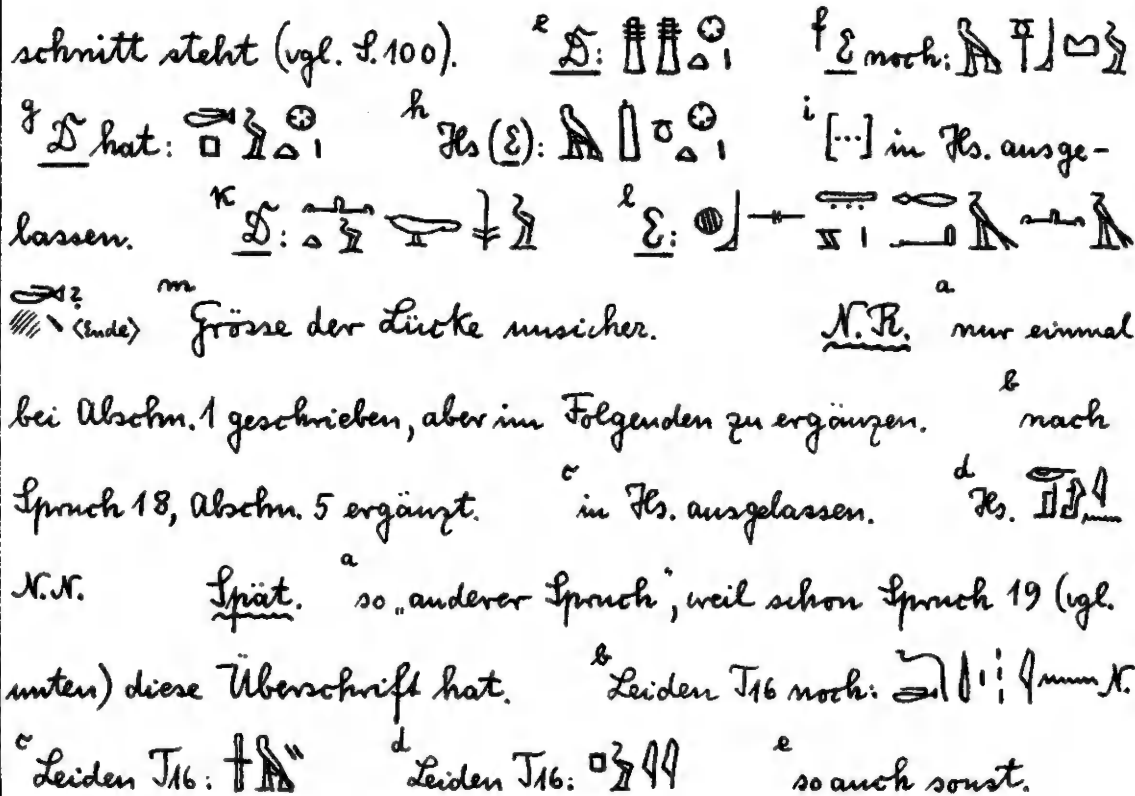 schnitt steht (vgl. S. 100). e D: 𓊽𓊽𓊖𓏏𓏤 f E noch: 𓅓
g D hat: 𓊪𓅱𓊖𓏏𓏤 h Hs (E): 𓅓𓏌𓊖𓏏𓏤 i [...] in Hs. ausge-
lassen. K D: 𓂜𓏏𓅱 l E: 𓐍𓃀𓊃 𓂝𓅓𓂜𓅓
<Ende> m Grösse der Lücke unsicher. N.R. a nur einmal
bei Abschn. 1 geschrieben, aber im Folgenden zu ergänzen. b nach
Spruch 18, Abschn. 5 ergänzt. c in Hs. ausgelassen. d Hs.
N.N. Spät. a so „anderer Spruch", weil schon Spruch 19 (vgl.
unten) diese Überschrift hat. b Leiden T16 noch: 𓇋𓈖 N.
c Leiden T16: 𓅓𓏭 d Leiden T16: 𓊪𓅱𓇋𓇋 e so auch sonst.